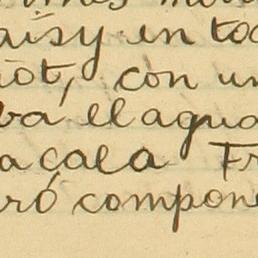 aisy en to
iot, con un
ba el agua
a cala Fr
ró compon